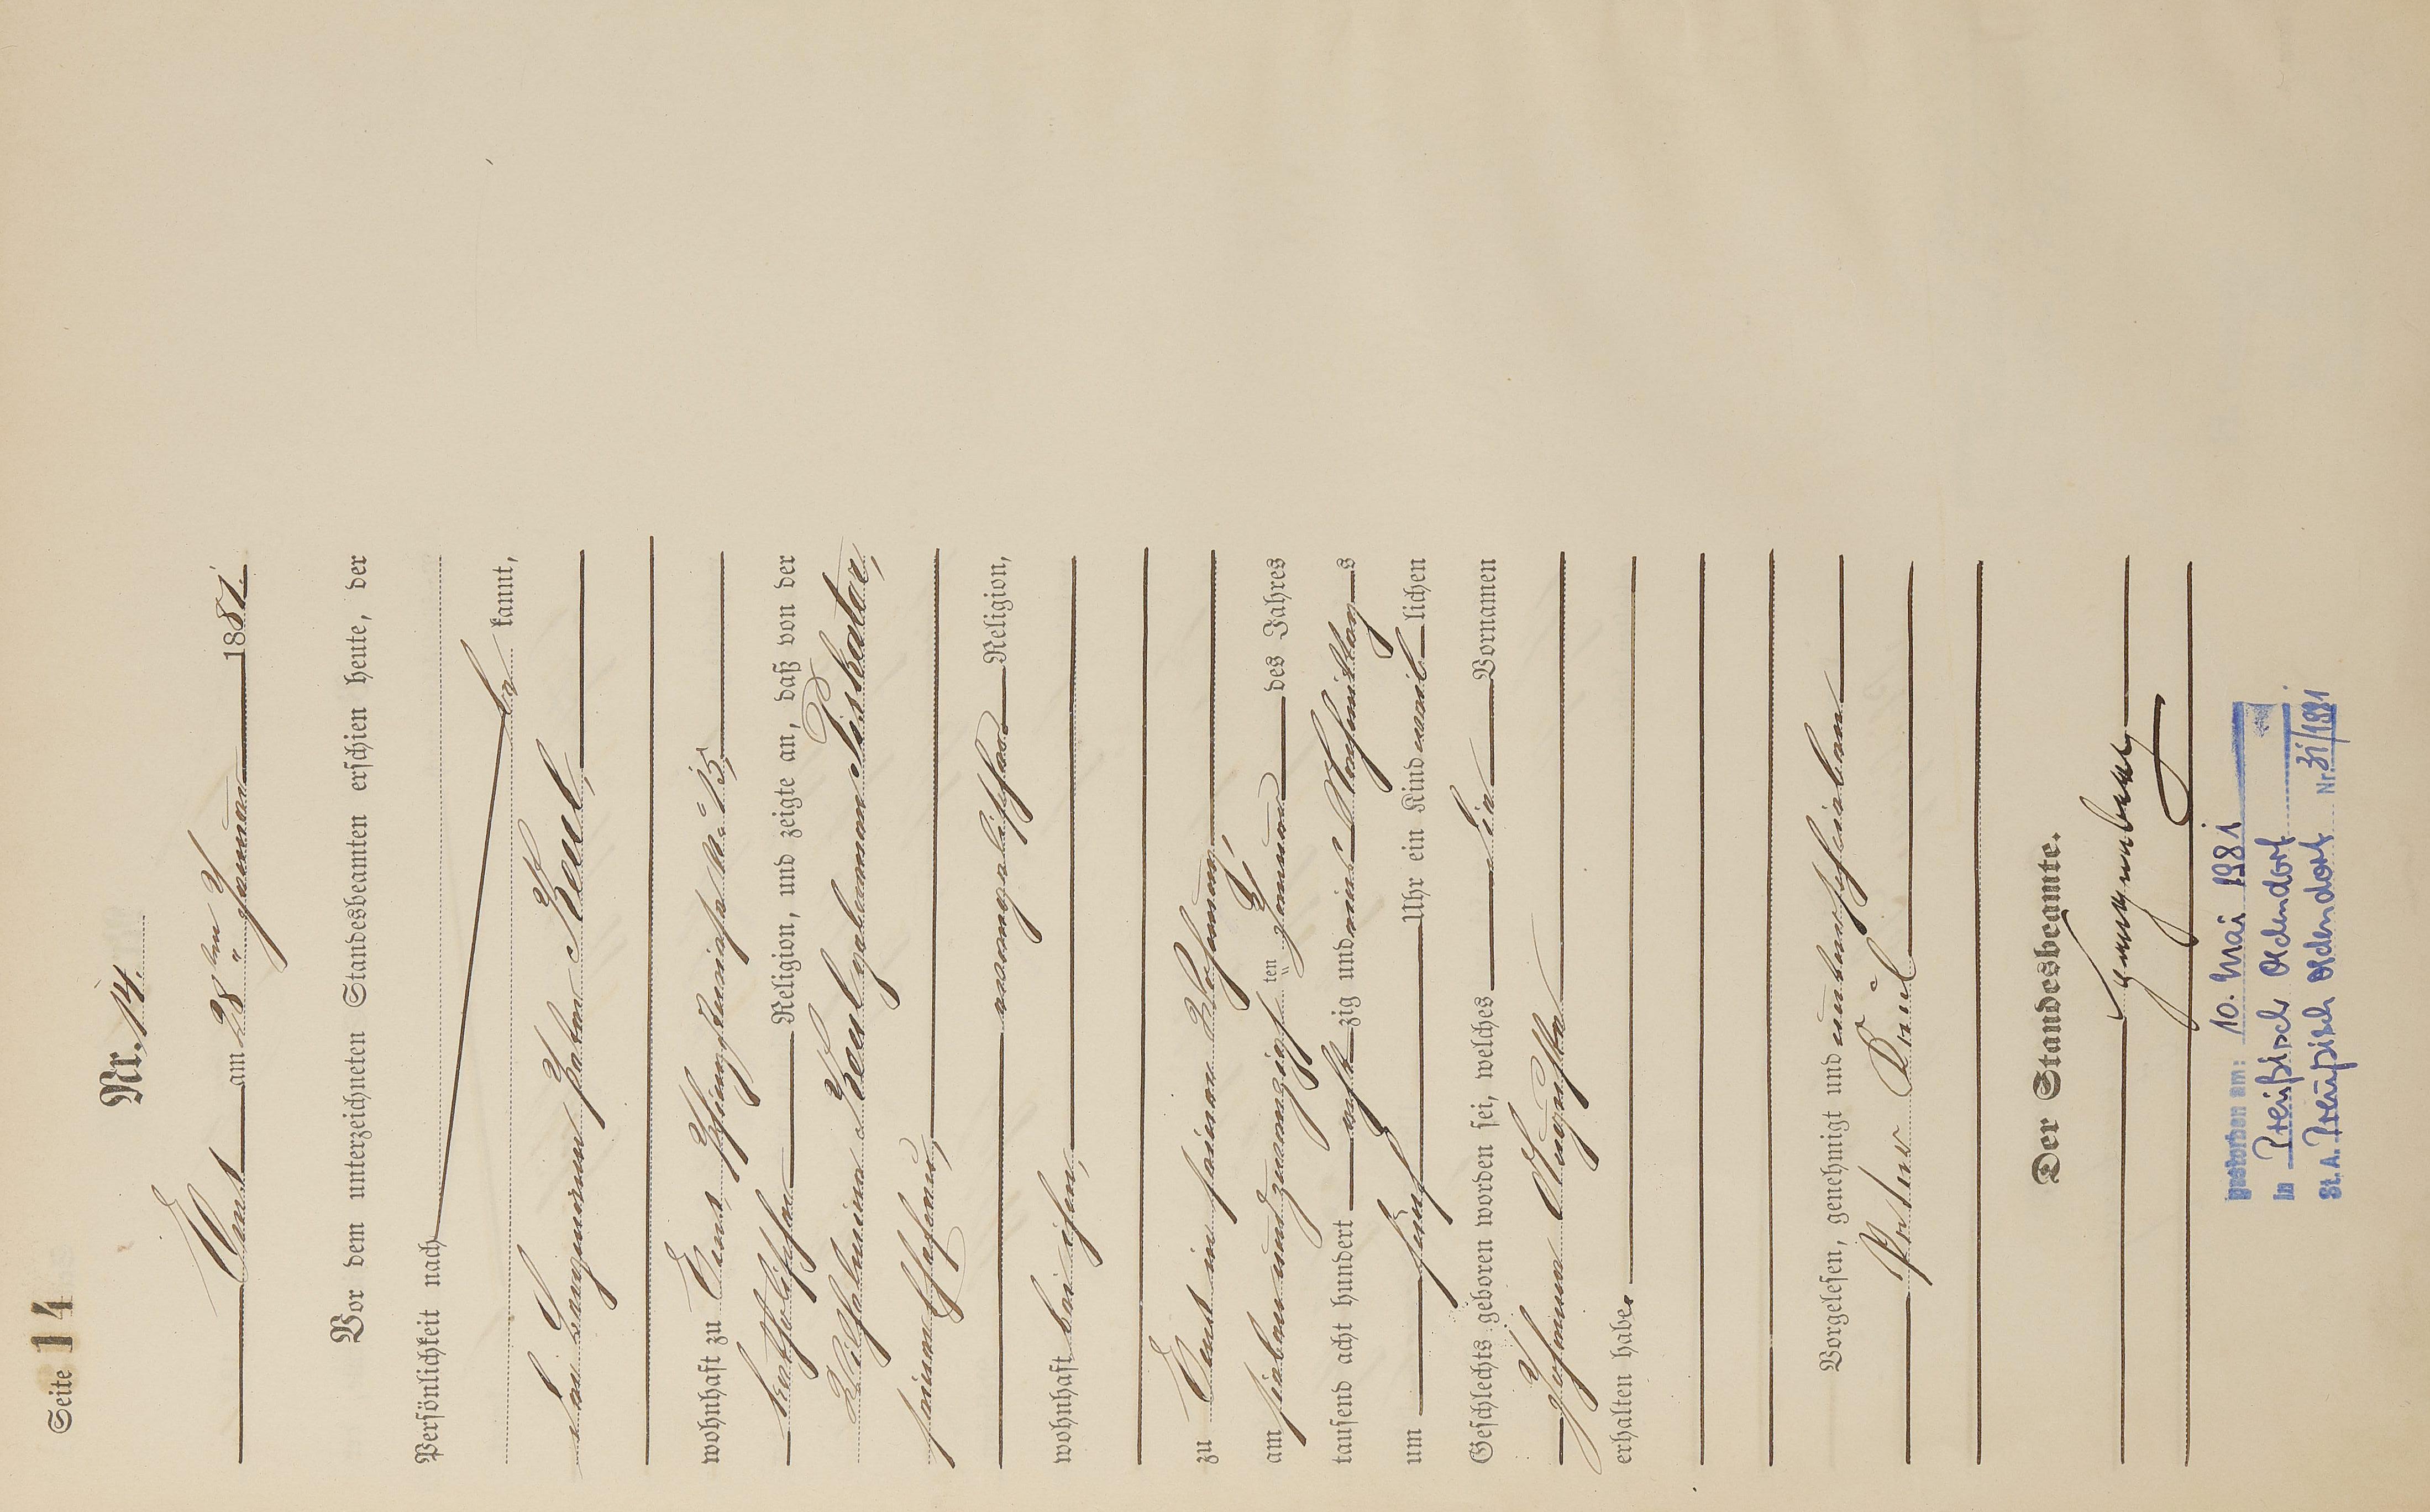 Seite 14
Nr. 14.
Ems am 28ten Januar 1887.
Vor dem unterzeichneten Standesbeamten erschien heute, der
Persönlichkeit nach
be kannt,
der Bergmann Peter Keul,
wohnhaft zu Ems, No 13,
katholischer Religion, und zeigte an, daß von der
Wilhelmine Keul geborenen Piskator,
seiner Ehefrau,
evangelischer Religion,
wohnhaft bei ihm,
zu Ems in seiner Wohnung,
am sieben und zwanzigsten Januar des Jahres
tausend acht hundert acht zig und Nachmittags
um fünf Uhr ein Kind weib lichen
Geschlechts geboren worden sei, welches die Vornamen
Johanna Auguste
erhalten habe.
Vorgelesen, genehmigt und unterschrieben
Peter Keul
Der Standesbeamte.
gestorben am: 10. Mai 1981
in Preußisch Oldendorf
St.A. Preußisch Oldendorf Nr. 31/1981